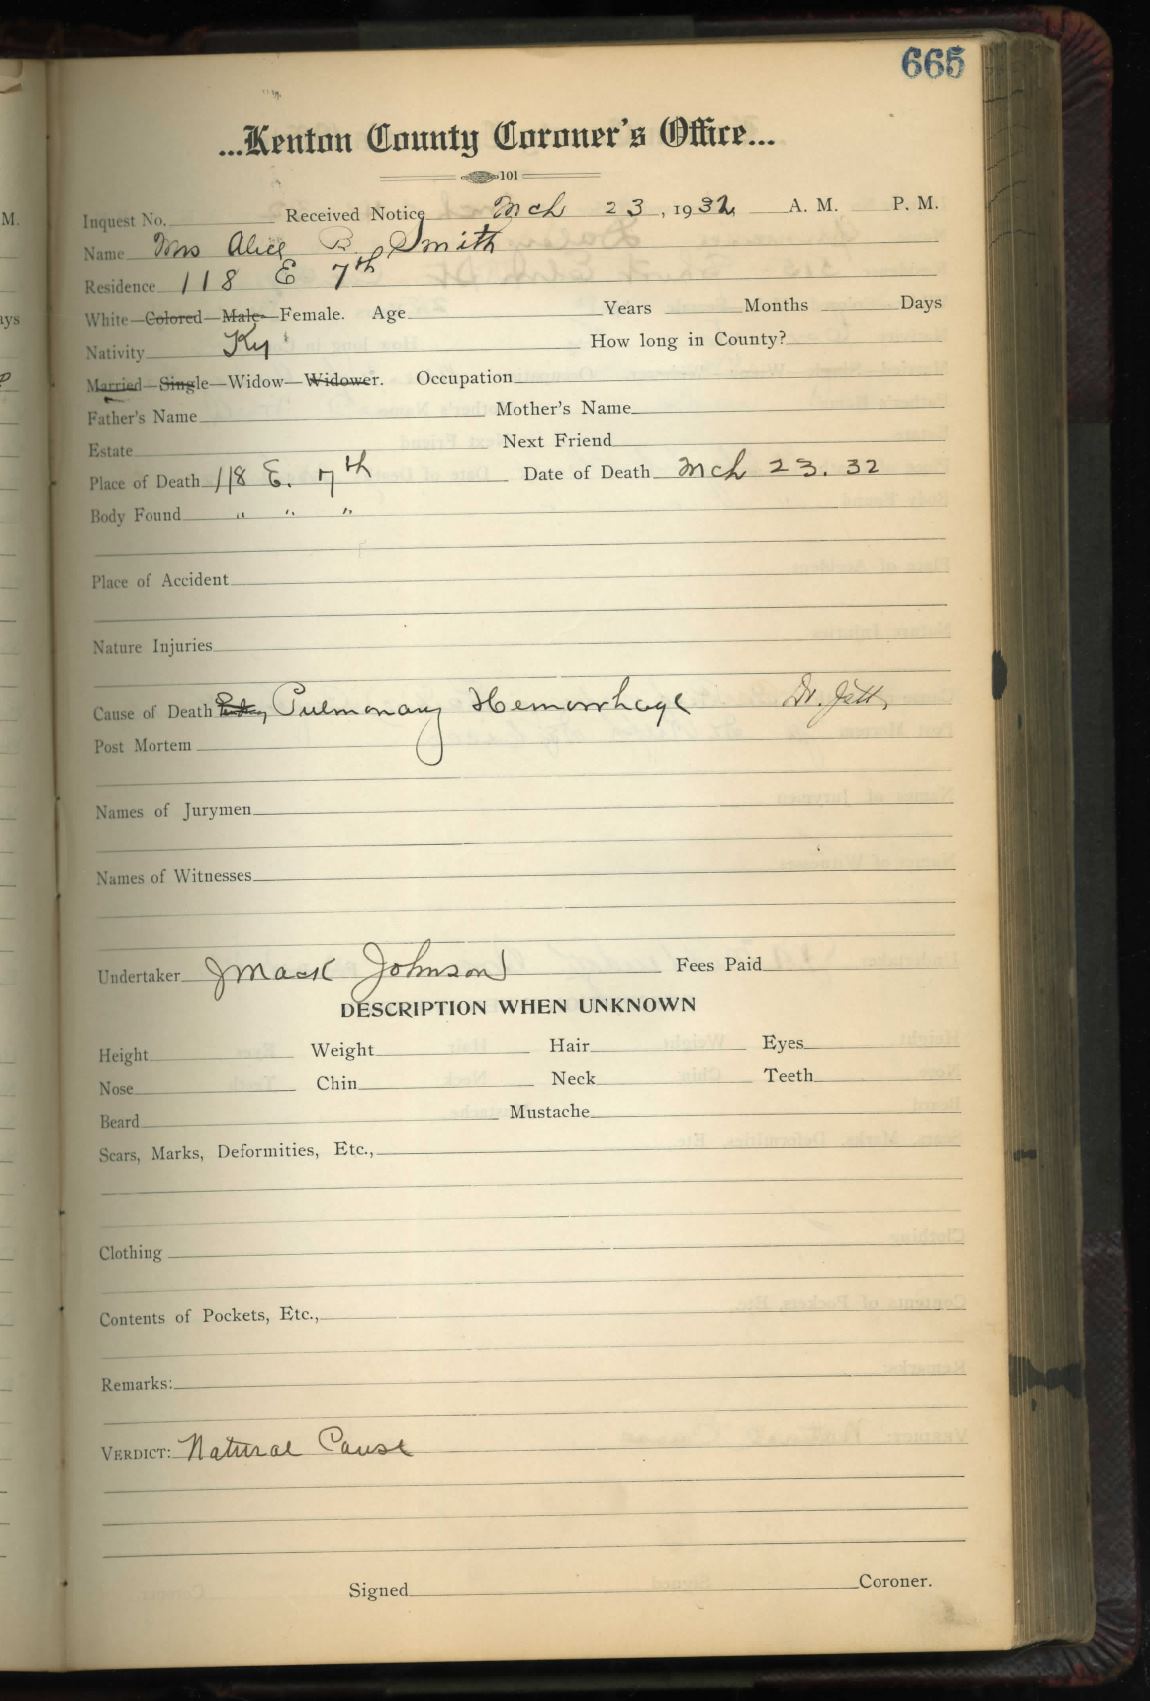 665
...Kenton County Coroner's Office...
101
Inquest No. Received Notice Mch 23, 1932 A. M. P. M.
Name Mrs Alice B Smith
Residence 118 E 7th
White—Colored—Male—Female. Age Years Months Days
Nativity Ky How long in County?
Married—Single—Widow—Widower. Occupation
Father's Name Mother's Name
Estate Next Friend
Place of Death 118 E. 7th Date of Death Mch 23. 32
Body Found " " "
Place of Accident
Nature Injuries
Cause of Death Pulmonary Hemorrhage Dr.
Post Mortem
Names of Jurymen
Names of Witnesses
Undertaker J Mack Johnson Fees Paid
DESCRIPTION WHEN UNKNOWN
Height Weight Hair Eyes
Nose Chin Neck Teeth
Beard Mustache
Scars, Marks, Deformities, Etc.,
Clothing
Contents of Pockets, Etc.,
Remarks:
VERDICT: Natural Cause
Signed Coroner.